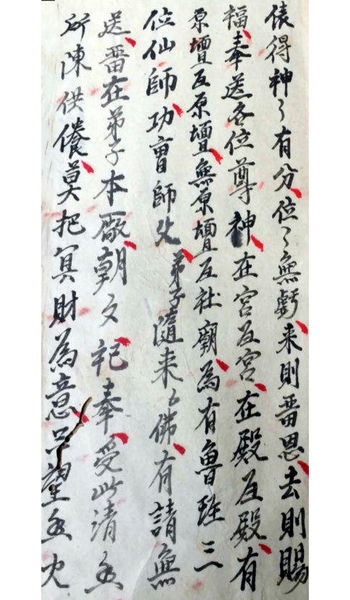 俵得神々有分位々無虧来則畱恩去則賜
福奉送各位尊神在宮互宮在殿互殿有
原壇互原壇無原壇互社廟為有魯班三
位仙師功曹師父弟子隨来佛有請無
送畱在弟子本厰朝夕祀奉受此清香
所陳供儀莫把冥財為意只望香火